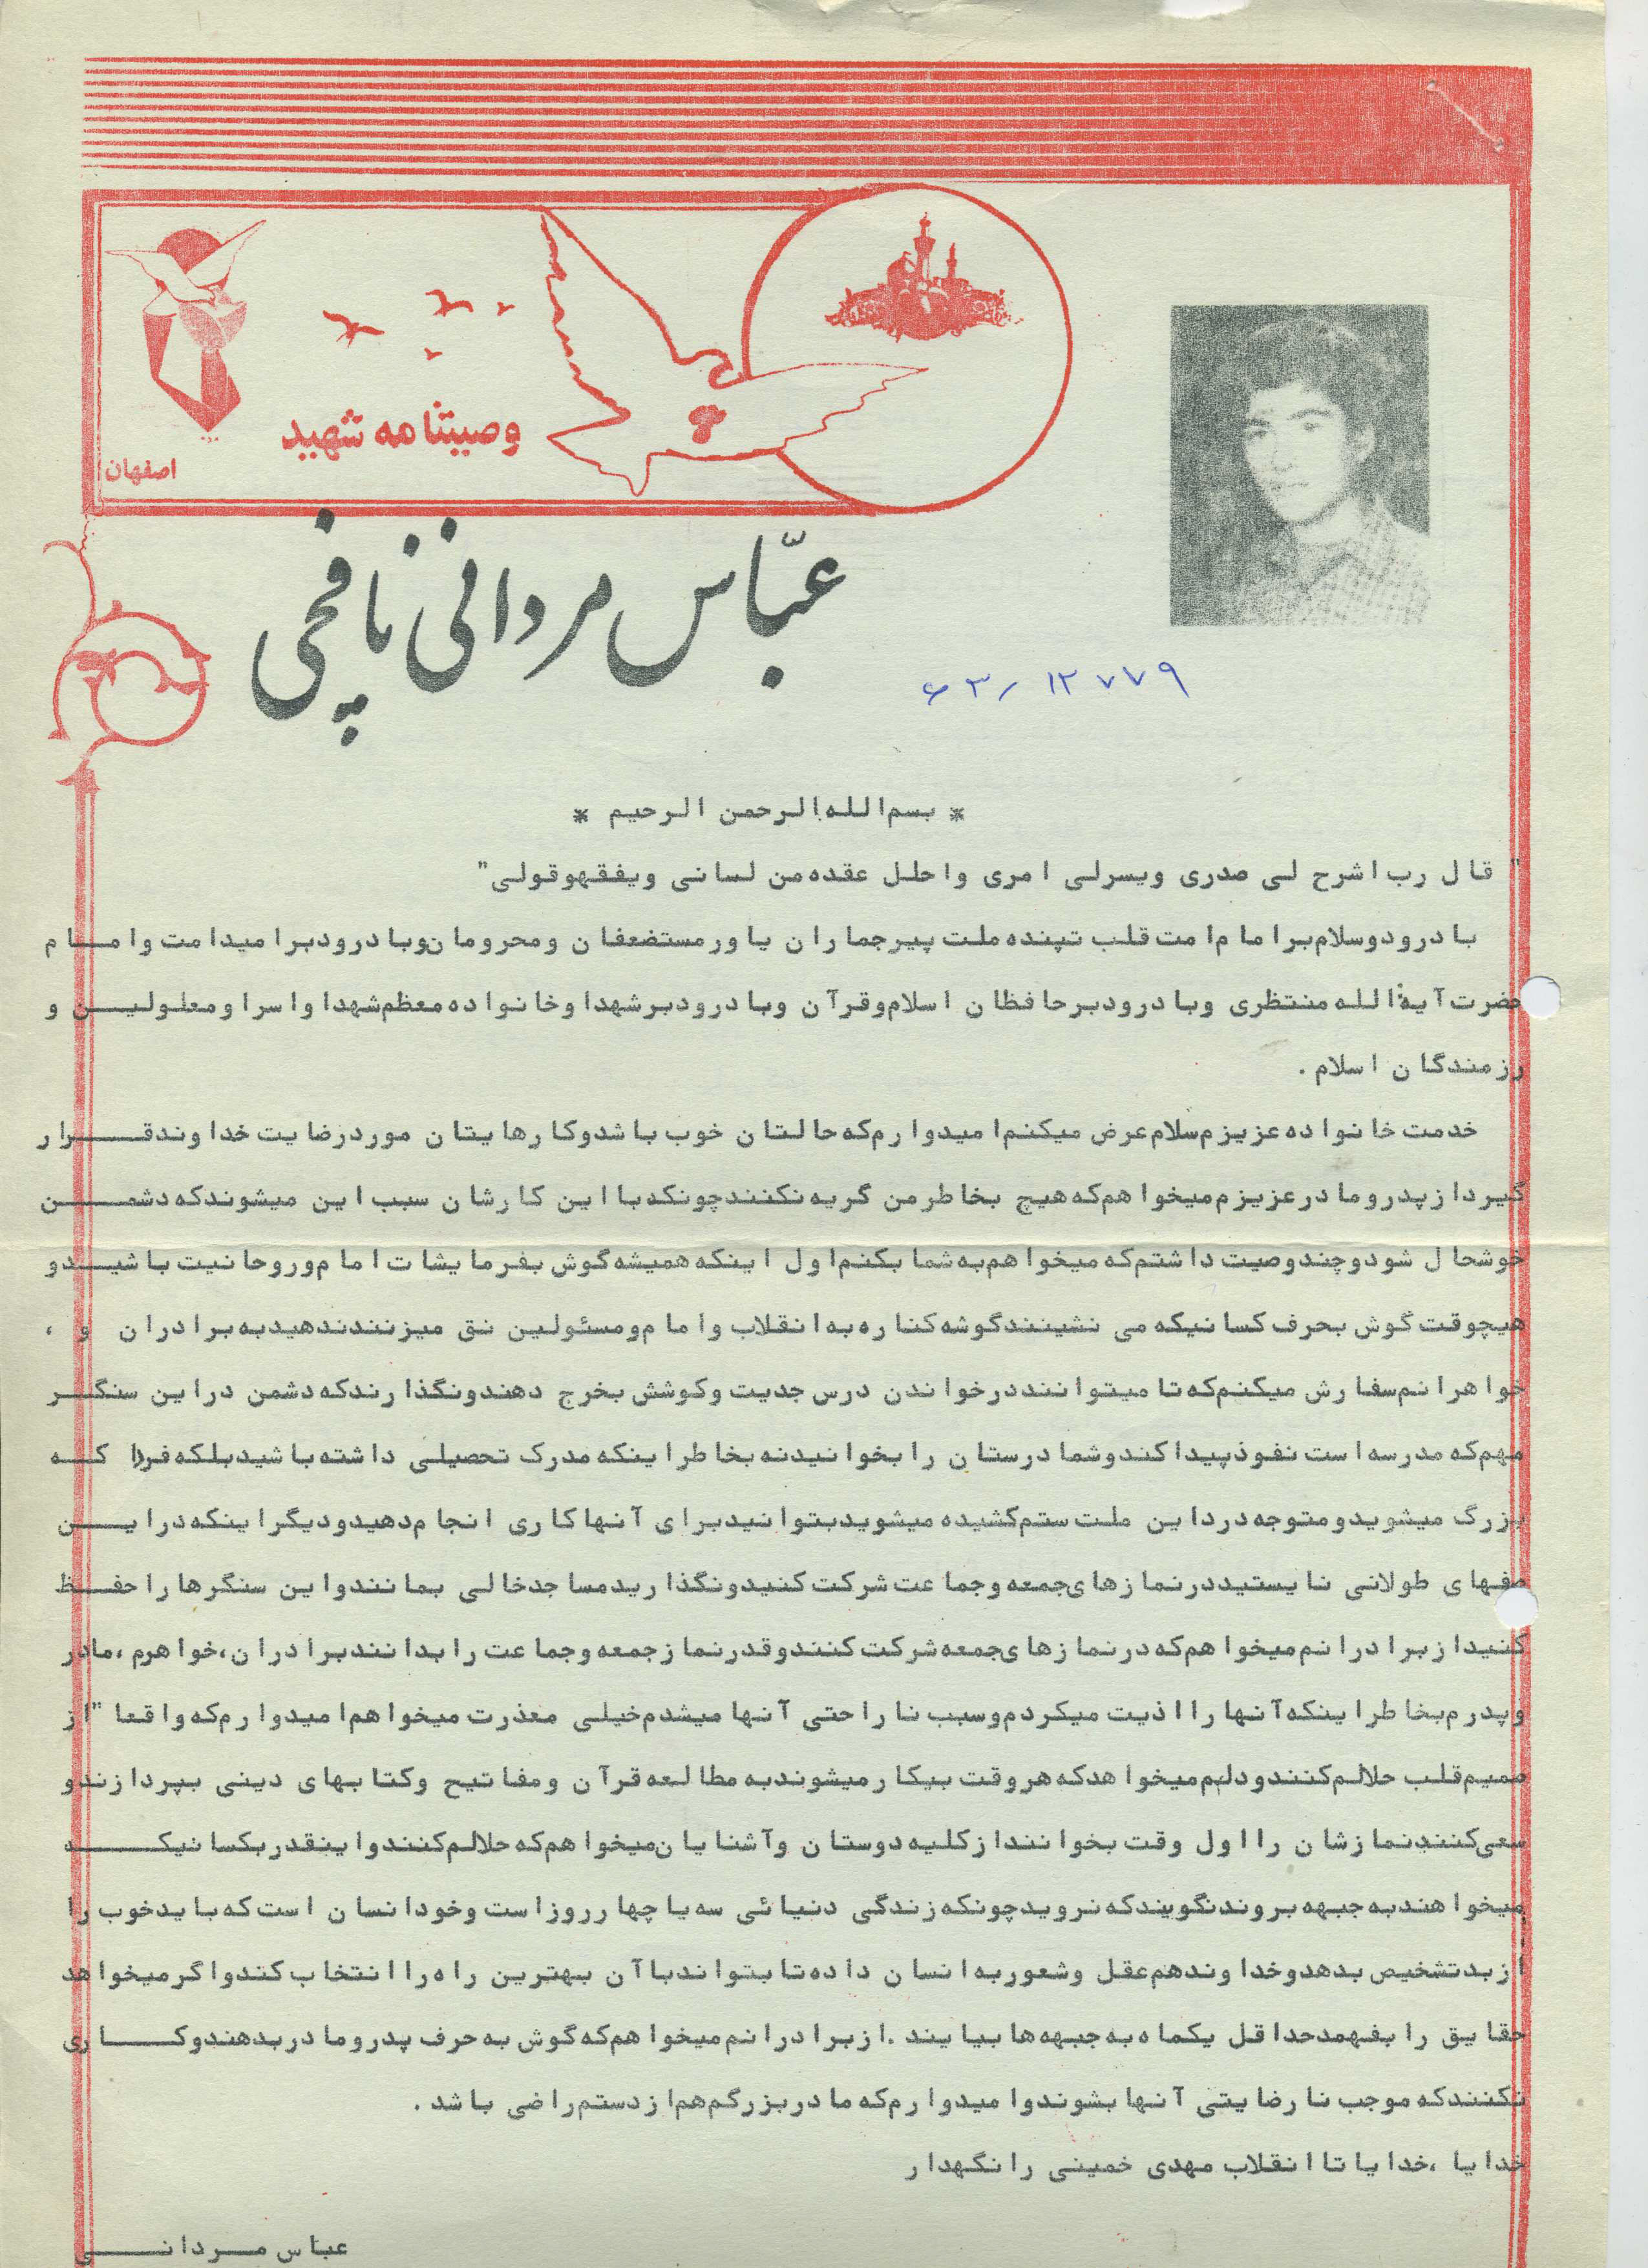 وصیتنامه شهید
اصفهان
عبّاس مردانی نافچی
۶۳/۱۲۷۷۹
* بسم الله الرحمن الرحیم *
" قال رب اشرح لی صدری ویسرلی امری واحلل عقده من لسانی ویفقهوقولی"
با درودوسلام برامام امت قلب تپنده ملت پیرجماران یاورمستضعفان ومحرومان وبا درودبرامیدامت وامام
حضرت آیةالله منتظری وبا درودبرحافظان اسلام وقرآن وبا درودبرشهداوخانواده معظم شهداواسراومعلولین و
رزمندگان اسلام .
خدمت خانواده عزیزم سلام عرض میکنم امیدوارم که حالتان خوب باشدوکارهایتان موردرضایت خداوندقرار
گیرد ازپدرومادرعزیزم میخواهم که هیچ بخاطرمن گریه نکنندچونکه بااین کارشان سبب این میشوندکه دشمن
خوشحال شودوچندوصیت داشتم که میخواهم به شما بکنم اول اینکه همیشه گوش بفرمایشات امام وروحانیت باشیدو
هیچوقت گوش بحرف کسانیکه می نشینندگوشه کناره به انقلاب وامام ومسئولین نق میزنندندهیدبه برادران و ،
خواهرانم سفارش میکنم که تا میتوانند درخواندن درس جدیت وکوشش بخرج دهندونگذارندکه دشمن دراین سنگر
مهم که مدرسه است نفوذپیداکندوشما درستان را بخوانیدنه بخاطراینکه مدرک تحصیلی داشته باشیدبلکه فردا که
بزرگ میشویدومتوجه درداین ملت ستم کشیده میشویدبتوانیدبرای آنهاکاری انجام دهیدودیگراینکه دراین
صفهای طولانی نایستیددرنمازهای جمعه وجماعت شرکت کنیدونگذاریدمساجدخالی بمانندواین سنگرها را حفظ
کنیدازبرادرانم میخواهم که درنمازهای جمعه شرکت کنندوقدرنمازجمعه وجماعت را بدانندبرادران،خواهرم ،مادر
وپدرم بخاطراینکه آنها رااذیت میکردم وسبب ناراحتی آنها میشدم خیلی معذرت میخواهم امیدوارم که واقعا "از
صمیم قلب حلالم کنندودلم میخواهدکه هروقت بیکارمیشوندبه مطالعه قرآن ومفاتیح وکتابهای دینی بپردازندو
سعی کنندنمازشان رااول وقت بخوانندازکلیه دوستان وآشنایان میخواهم که حلالم کنندواینقدربکسانیکه
میخواهندبه جبهه بروندنگویندکه نرویدچونکه زندگی دنیائی سه یا چهارروزاست وخودانسان است که بایدخوب را
ازبدتشخیص بدهدوخداوندهم عقل وشعوربه انسان داده تا بتواندباآن بهترین راه راانتخاب کندواگرمیخواهد
حقایق را بفهمدحداقل یکماه به جبهه ها بیایند .ازبرادرانم میخواهم که گوش به حرف پدرومادربدهندوکاری
نکنندکه موجب نارضایتی آنها بشوندوامیدوارم که مادربزرگم هم ازدستم راضی باشد .
خدایا ،خدایا تاانقلاب مهدی خمینی رانگهدار
عباس مردانی